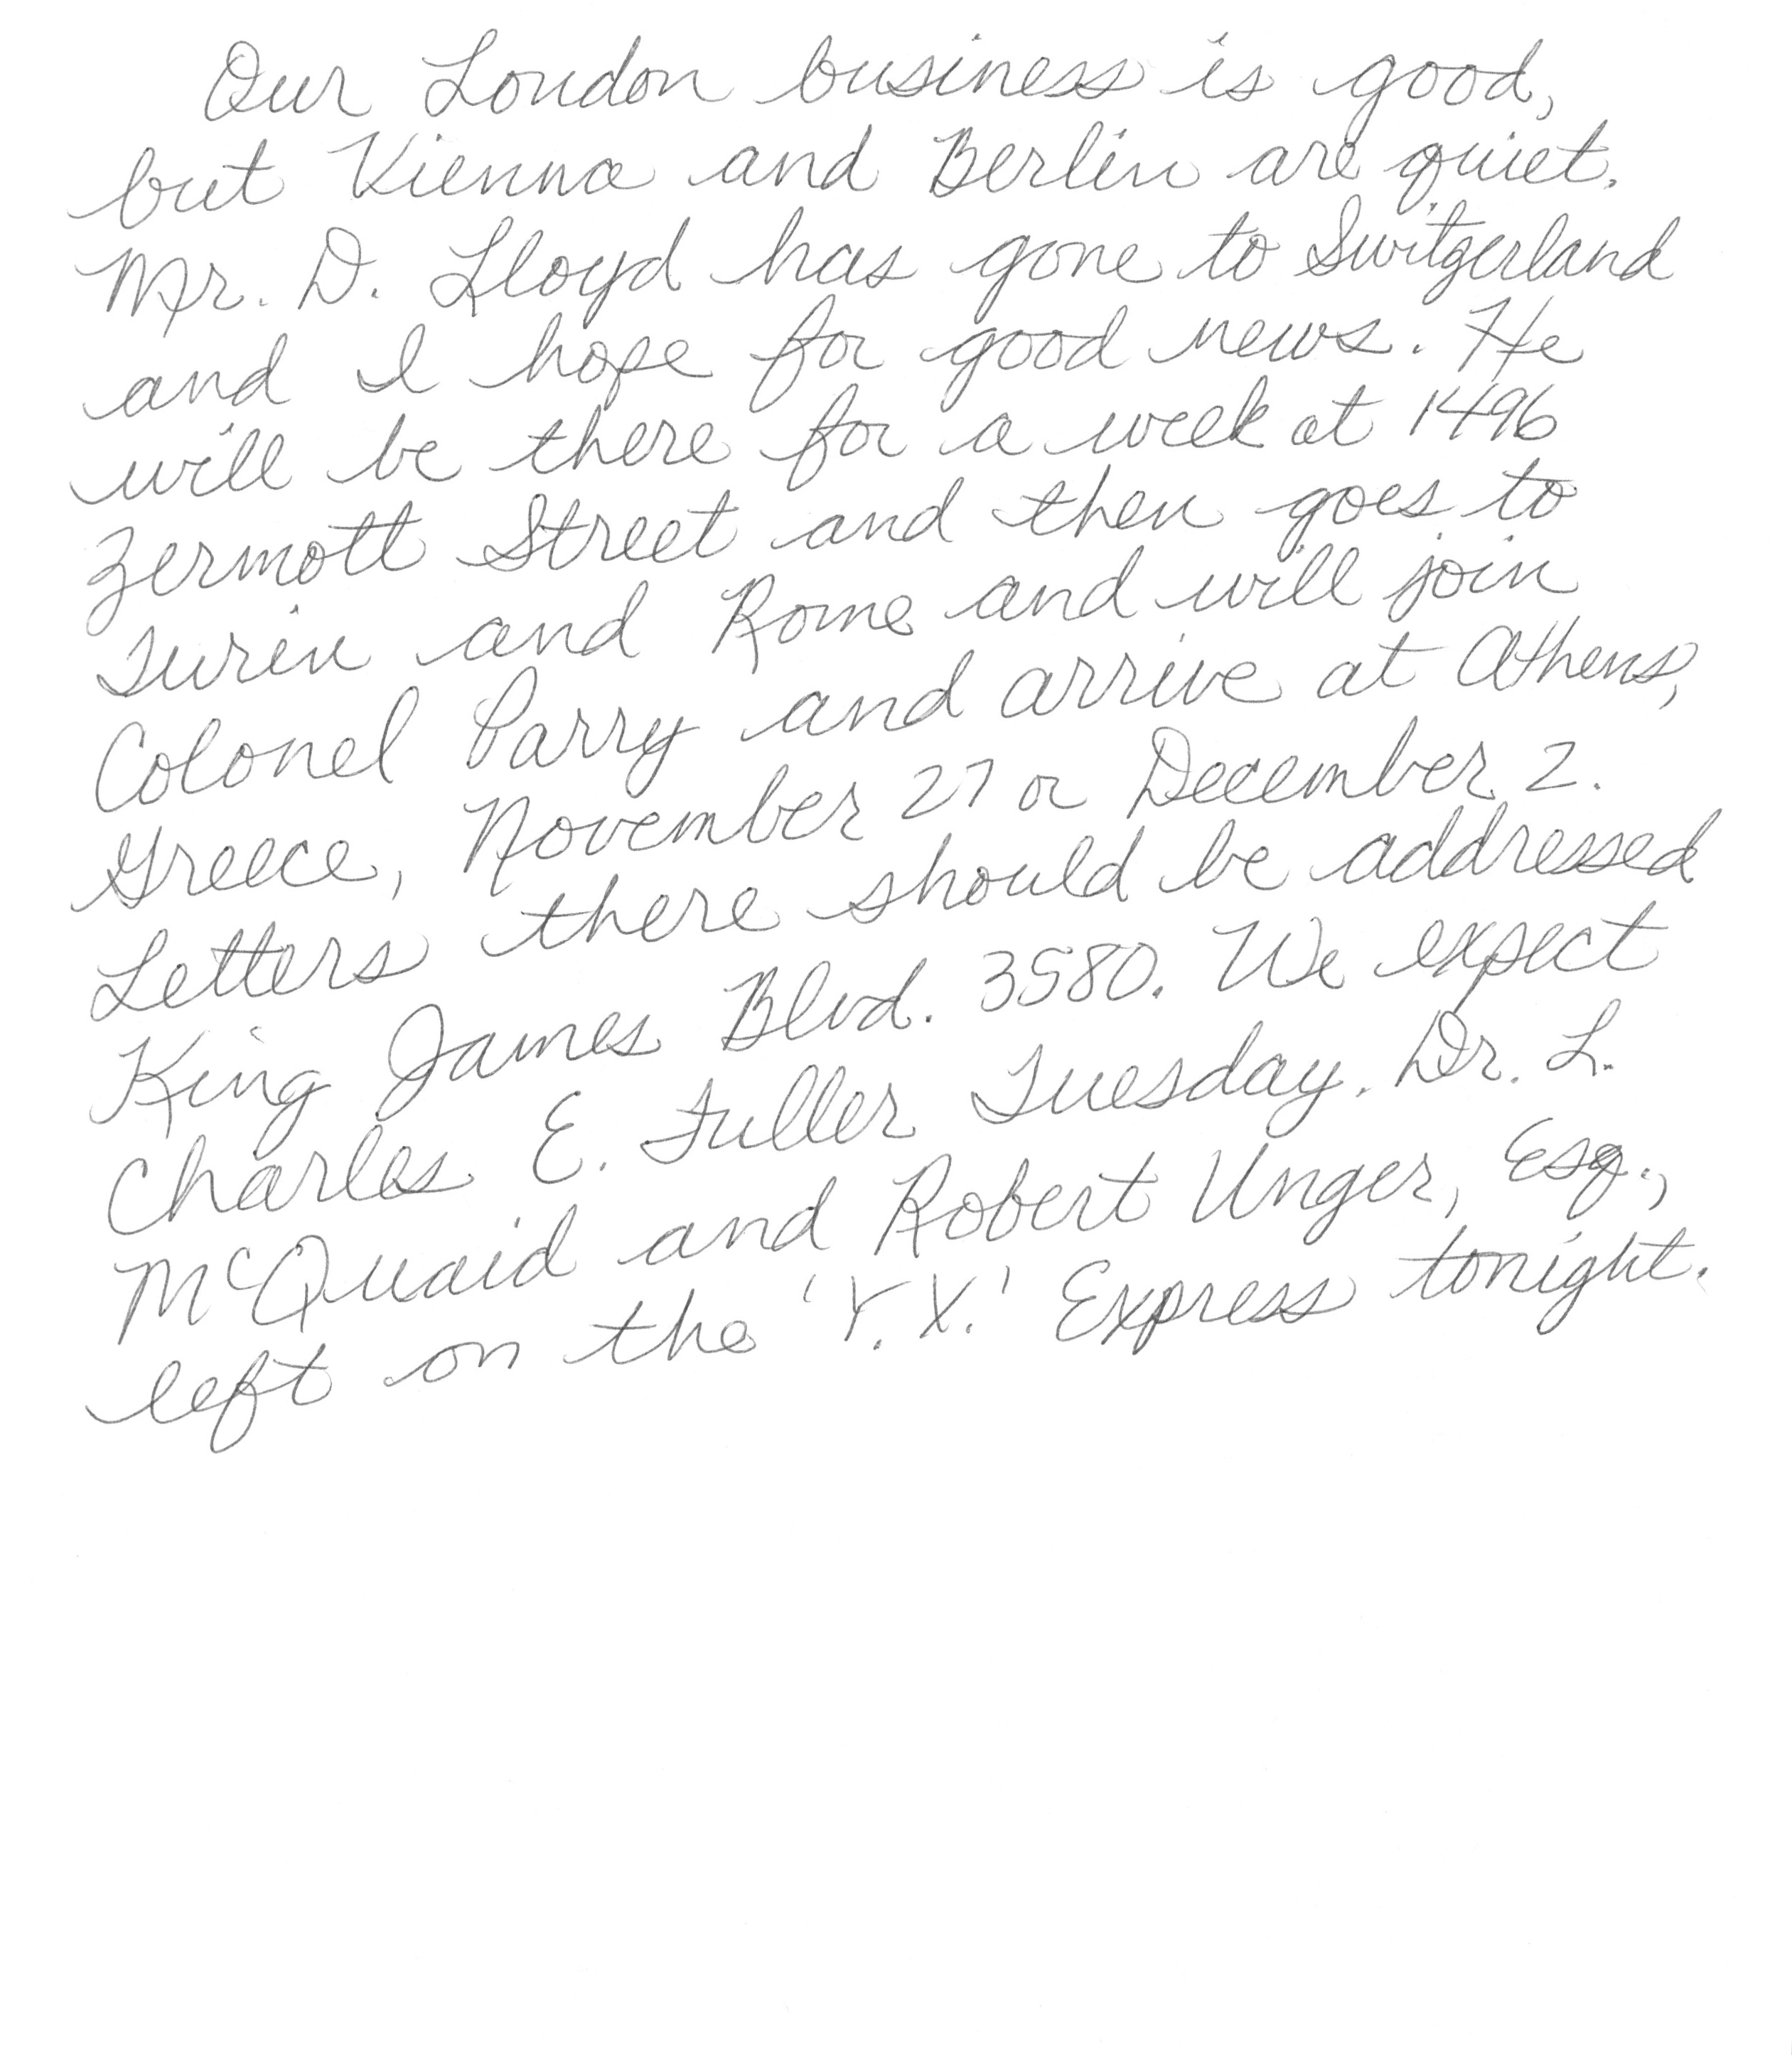 Our London business is good,
but Vienna and Berlin are quiet.
Mr. D. Lloyd has gone to Switzerland
and I hope for good news. He
will be there for a week at 1496
Zermott Street and then goes to
Turin and Rome and will join
Colonel Parry and arrive at Athens,
Greece, November 27 or December 2.
Letters there should be addressed
King James Blvd. 3580. We expect
Charles E. Fuller Tuesday. Dr. L.
McQuaid and Robert Unger, Esq.,
left on the 'Y.X.' Express tonight.